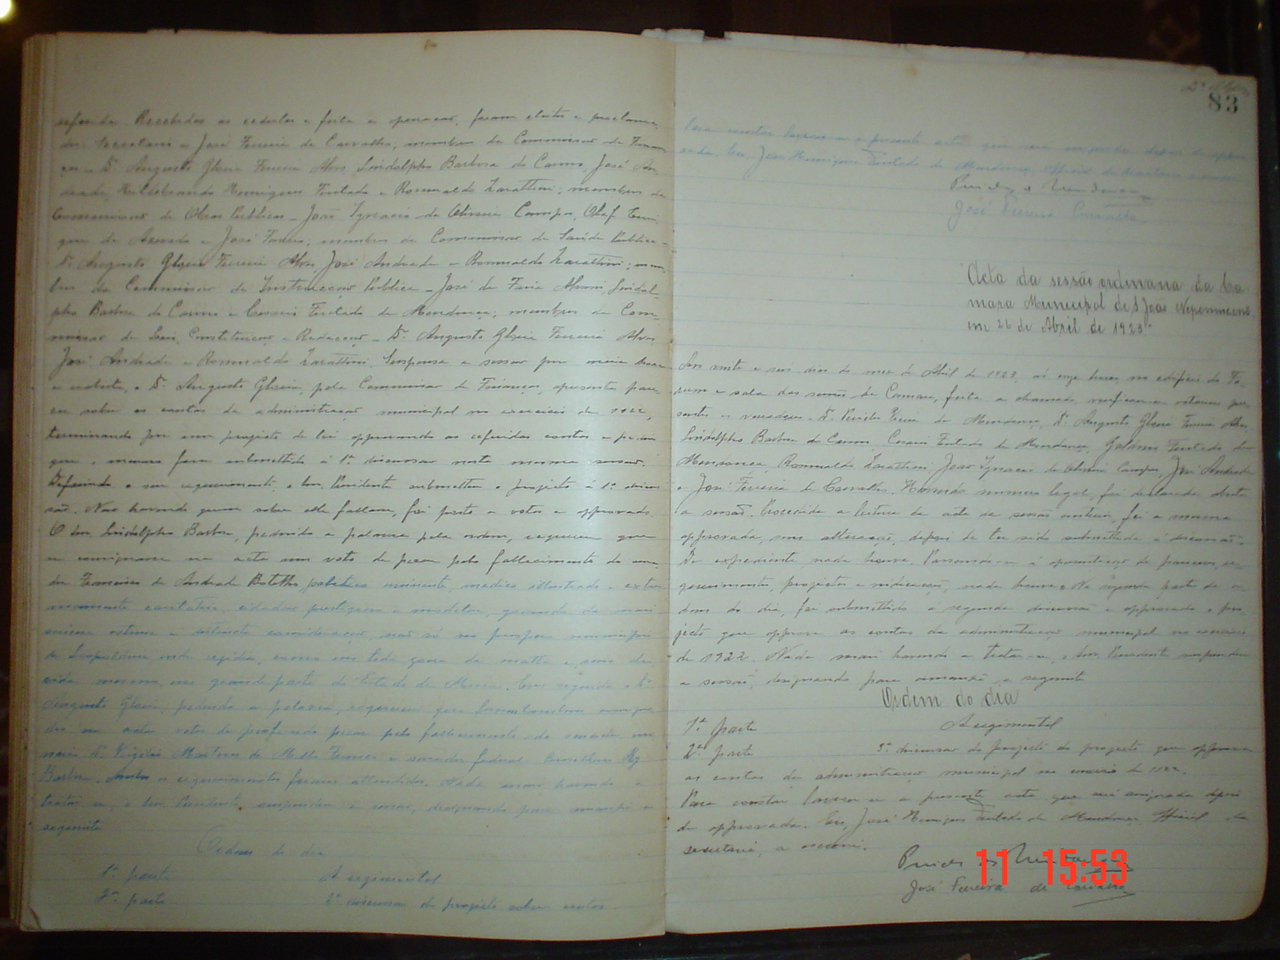 Recebidas as cedulas e feita a apuração, foram eleitos e proclama-
dos Secretario - José Ferreira de Carvalho, membros da Commissão de Finan-
ças - Dr. Augusto Gloria Ferreira Alves, Lindolpho Barbosa do Carmo, José An-
drade, Hildebrando Henriques Furtado e Romualdo Zarattini; membros da
Commissão de Obras Publicas - João Ignacio de Oliveira Campos,
de Azevedo e José ; membros da Commissão de Saúde Publica -
Dr. Augusto Gloria Ferreira Alves, José Andrade e Romualdo Zarattini; mem-
bros da Commissão de Instrucção Publica - José de Faria , Lindol-
pho Barbosa do Carmo e Cesario Furtado de Mendonça; membros da Com-
missão de Leis, Constituição e Redacção - Dr. Augusto Gloria Ferreira Alves,
José Andrade e Romualdo Zarattini. Suspensa a sessão por meia hora
e reaberta, o Dr. Augusto Gloria, pela Commissão de Finanças, apresenta pare-
cer sobre as contas da administração municipal no exercicio de 1922,
terminando por um projecto de lei approvando as referidas contas e
que o mesmo fosse submettido á 1ª discussão nesta mesma sessão.
Deferindo o seu requerimento, o Snr. Presidente submetteu o projecto á 1ª discus-
são. Não havendo quem sobre elle fallasse, foi posto a votos e approvado.
O Snr. Lindolpho Barbosa, pedindo a palavra pela ordem, requereu que
se consignasse na acta um voto de pezar pelo fallecimento do snr.
dr. Francisco de Andrade Botelho, medico illustrado e extre-
mamente caritativo, cidadão prestigioso e modelar, gosando da mais
estima e distincta consideração, não só no proprio municipio
de Leopoldina onde residia, como em toda zona da matta e,
em grande parte do Estado de Minas. Em seguida o Dr.
Augusto Gloria, pedindo a palavra, requereu que
votos de profundo pezar pelo fallecimento do
Dr. Virgilio Martins de Mello Franco e senador federal Conselheiro Ruy
Barbosa. os requerimentos foram attendidos. Nada mais havendo a
tratar-se, o Snr. Presidente suspendeu a sessão, designando para amanhã a
seguinte
Ordem do dia
1ª parte A regimental
2ª parte 2ª discussão do projecto sobre contas.
83
Para constar lavrou-se a presente acta que será assignada depois de appro-
vada. Eu, José Henriques Furtado de Mendonça, official da secretaria, a escrevi.
José Ferreira Carvalho
Acta da sessão ordinaria da Ca-
mara Municipal de S. João Nepomuceno
em 26 de Abril de 1923.
Aos vinte e seis dias do mez de Abril de 1923, ás onze horas, no edificio do Fo-
rum e sala das sessões da Camara, feita a chamada verificou-se estarem pre-
sentes os vereadores - Dr. Pericles de Mendonça, Dr. Augusto Gloria Ferreira Alves,
Lindolpho Barbosa do Carmo, Cesario Furtado de Mendonça, Furtado de
Mendonça, Romualdo Zarattini, João Ignacio de Oliveira Campos, José Andrade
e José Ferreira de Carvalho. Havendo numero legal, foi declarada aberta
a sessão. Procedida a leitura da acta da sessão anterior, foi a mesma
approvada, sem alteração, depois de ter sido submettida á discussão.
De expediente nada houve. Passando-se á apresentação de pareceres, re-
querimentos, projectos e indicações, nada houve. Na segunda parte da or-
dem do dia, foi submettido á segunda discussão e approvado o pro-
jecto que approva as contas da administração municipal no exercicio
de 1922. Nada mais havendo a tratar-se, o Snr. Presidente suspendeu
a sessão, designando para amanhã a seguinte
Ordem do dia
1ª parte A regimental
2ª parte 3ª discussão do projecto que approva
as contas da administração municipal no exercicio de 1922.
Para constar lavrou-se a presente acta que será assignada depois
de approvada. Eu, José Henriques Furtado de Mendonça, official da
secretaria, a escrevi.
José Ferreira de Carvalho
11 15:53